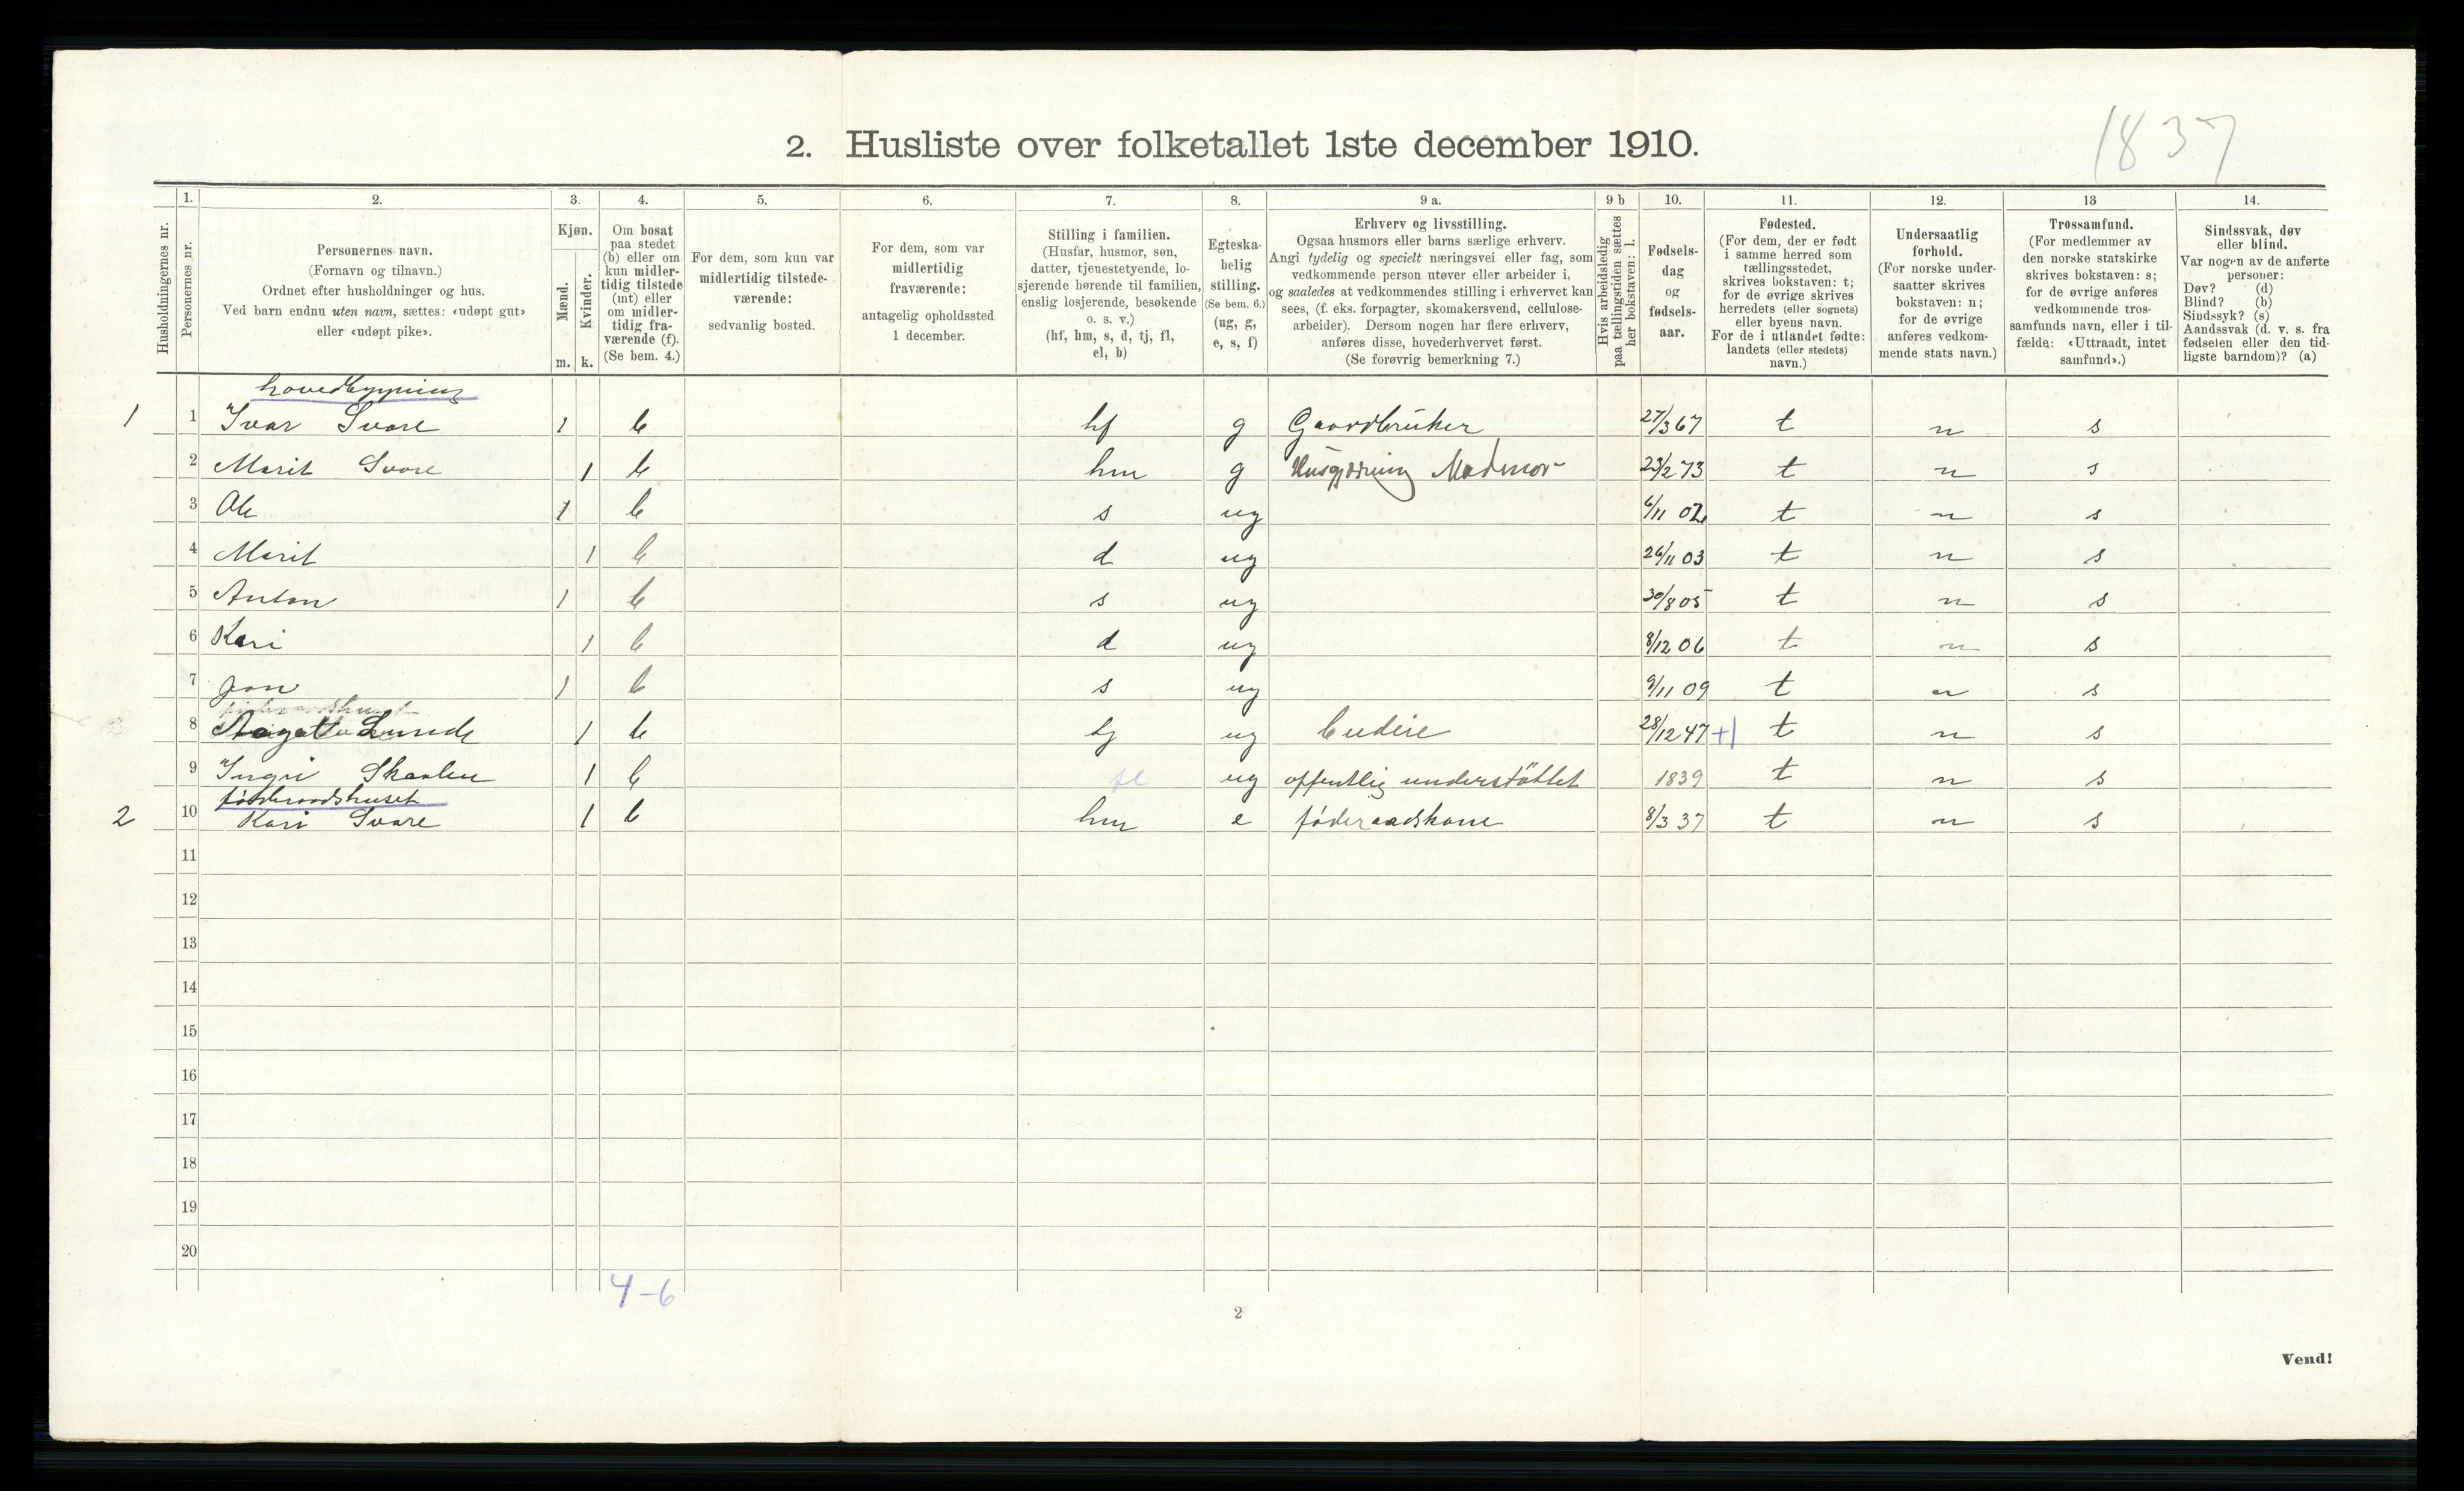 1837
2. Husliste over folketallet 1ste december 1910.
Husholdningernes nr.
1. Personernes nr.
2. Personernes navn. (Fornavn og tilnavn.) Ordnet efter husholdninger og hus. Ved barn endnu uten navn, sættes: «udøpt gut» eller «udøpt pike».
3. Kjøn. Mænd. m. Kvinder. k.
4. Om bosat paa stedet (b) eller om kun midlertidig tilstede (mt) eller om midlertidig fraværende (f). (Se bem. 4.)
5. For dem, som kun var midlertidig tilstedeværende: sedvanlig bosted.
6. For dem, som var midlertidig fraværende: antagelig opholdssted 1 december.
7. Stilling i familien. (Husfar, husmor, søn, datter, tjenestetyende, losjerende hørende til familien, enslig losjerende, besøkende o. s. v.) (hf, hm, s, d, tj, fl, el, b)
8. Egteskabelig stilling. (Se bem. 6.) (ug, g, e, s, f)
9 a. Erhverv og livsstilling. Ogsaa husmors eller barns særlige erhverv. Angi tydelig og specielt næringsvei eller fag, som vedkommende person utøver eller arbeider i, og saaledes at vedkommendes stilling i erhvervet kan sees, (f. eks. forpagter, skomakersvend, cellulosearbeider). Dersom nogen har flere erhverv, anføres disse, hovederhvervet først. (Se forøvrig bemerkning 7.)
9 b Hvis arbeidsledig paa tællingstiden sættes her bokstaven: l.
10. Fødselsdag og fødselsaar.
11. Fødested. (For dem, der er født i samme herred som tællingsstedet, skrives bokstaven: t; for de øvrige skrives herredets (eller sognets) eller byens navn. For de i utlandet fødte: landets (eller stedets) navn.)
12. Undersaatlig forhold. (For norske undersaatter skrives bokstaven: n; for de øvrige anføres vedkommende stats navn.)
13 Trossamfund. (For medlemmer av den norske statskirke skrives bokstaven: s; for de øvrige anføres vedkommende trossamfunds navn, eller i tilfælde: «Uttraadt, intet samfund».)
14. Sindssvak, døv eller blind. Var nogen av de anførte personer: Døv? (d) Blind? (b) Sindssyk? (s) Aandssvak (d. v. s. fra fødselen eller den tidligste barndom)? (a)
hovedbygning
1 1 Ivar Svare 1 b hf g Gaardbruker 27/3 67 t n s
2 Marit Svare 1 b hm g Husgjerning Madmor 23/2 73 t n s
3 Ole 1 b s ug 6/11 02 t n s
4 Marit 1 b d ug 26/11 03 t n s
5 Anton 1 b s ug 30/8 05 t n s
6 Kari 1 b d ug 8/12 06 t n s
7 Jon 1 b s ug 9/11 09 t n s
8 Aagot Lunde 1 b tj ug budeie 28/12 47 +1 t n s
9 Ingri Skaalen 1 b fl ug offentlig understöttet 1839 t n s
föderaadshuset
2 10 Kari Svare 1 b hm e föderaadskone 8/3 37 t n s
11
12
13
14
15
16
17
18
19
20
4-6
2
Vend!